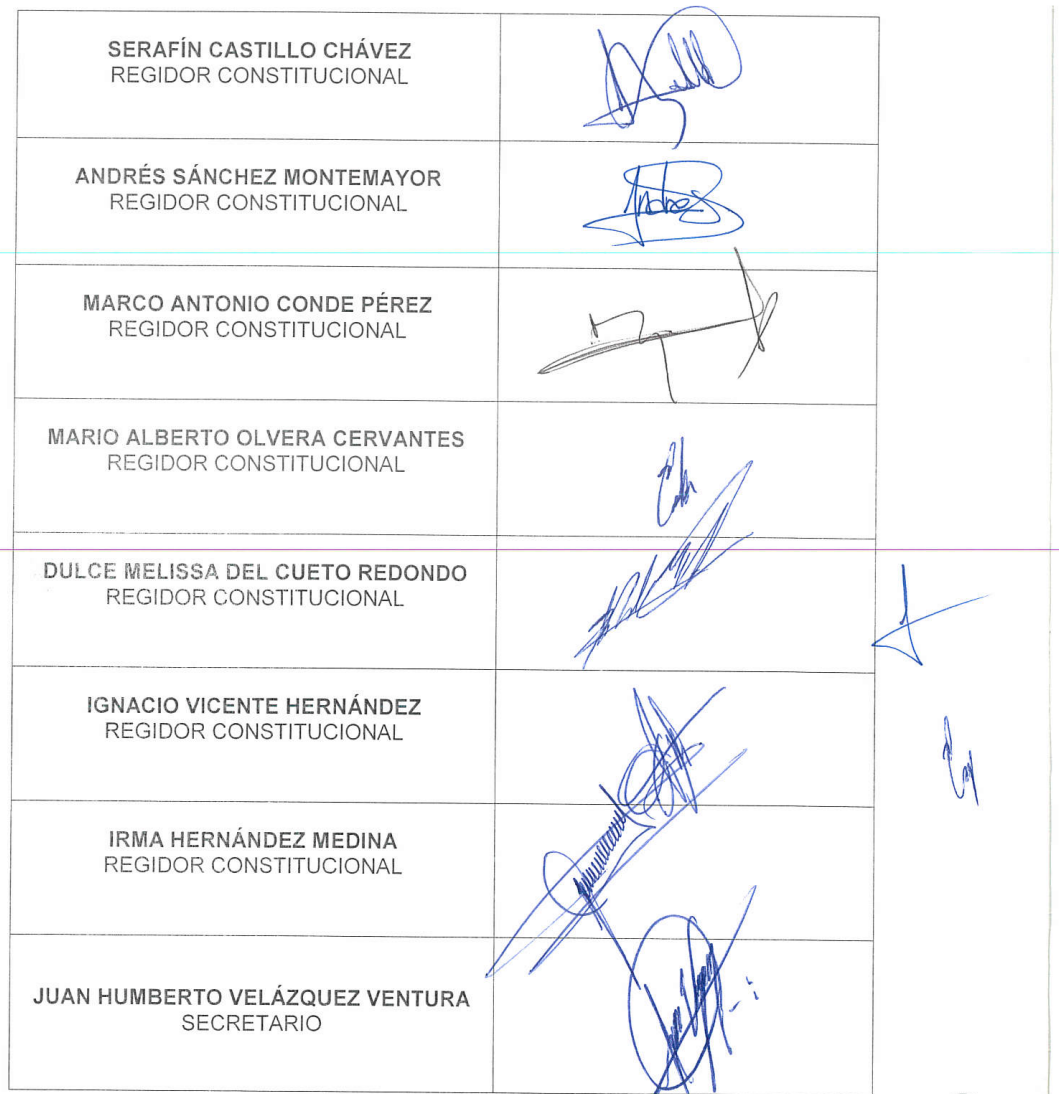 SERAFÍN CASTILLO CHÁVEZ
REGIDOR CONSTITUCIONAL
ANDRÉS SÁNCHEZ MONTEMAYOR
REGIDOR CONSTITUCIONAL
Andres
MARCO ANTONIO CONDE PÉREZ
REGIDOR CONSTITUCIONAL
MARIO ALBERTO OLVERA CERVANTES
REGIDOR CONSTITUCIONAL
DULCE MELISSA DEL CUETO REDONDO
REGIDOR CONSTITUCIONAL
IGNACIO VICENTE HERNÁNDEZ
REGIDOR CONSTITUCIONAL
IRMA HERNÁNDEZ MEDINA
REGIDOR CONSTITUCIONAL
JUAN HUMBERTO VELÁZQUEZ VENTURA
SECRETARIO